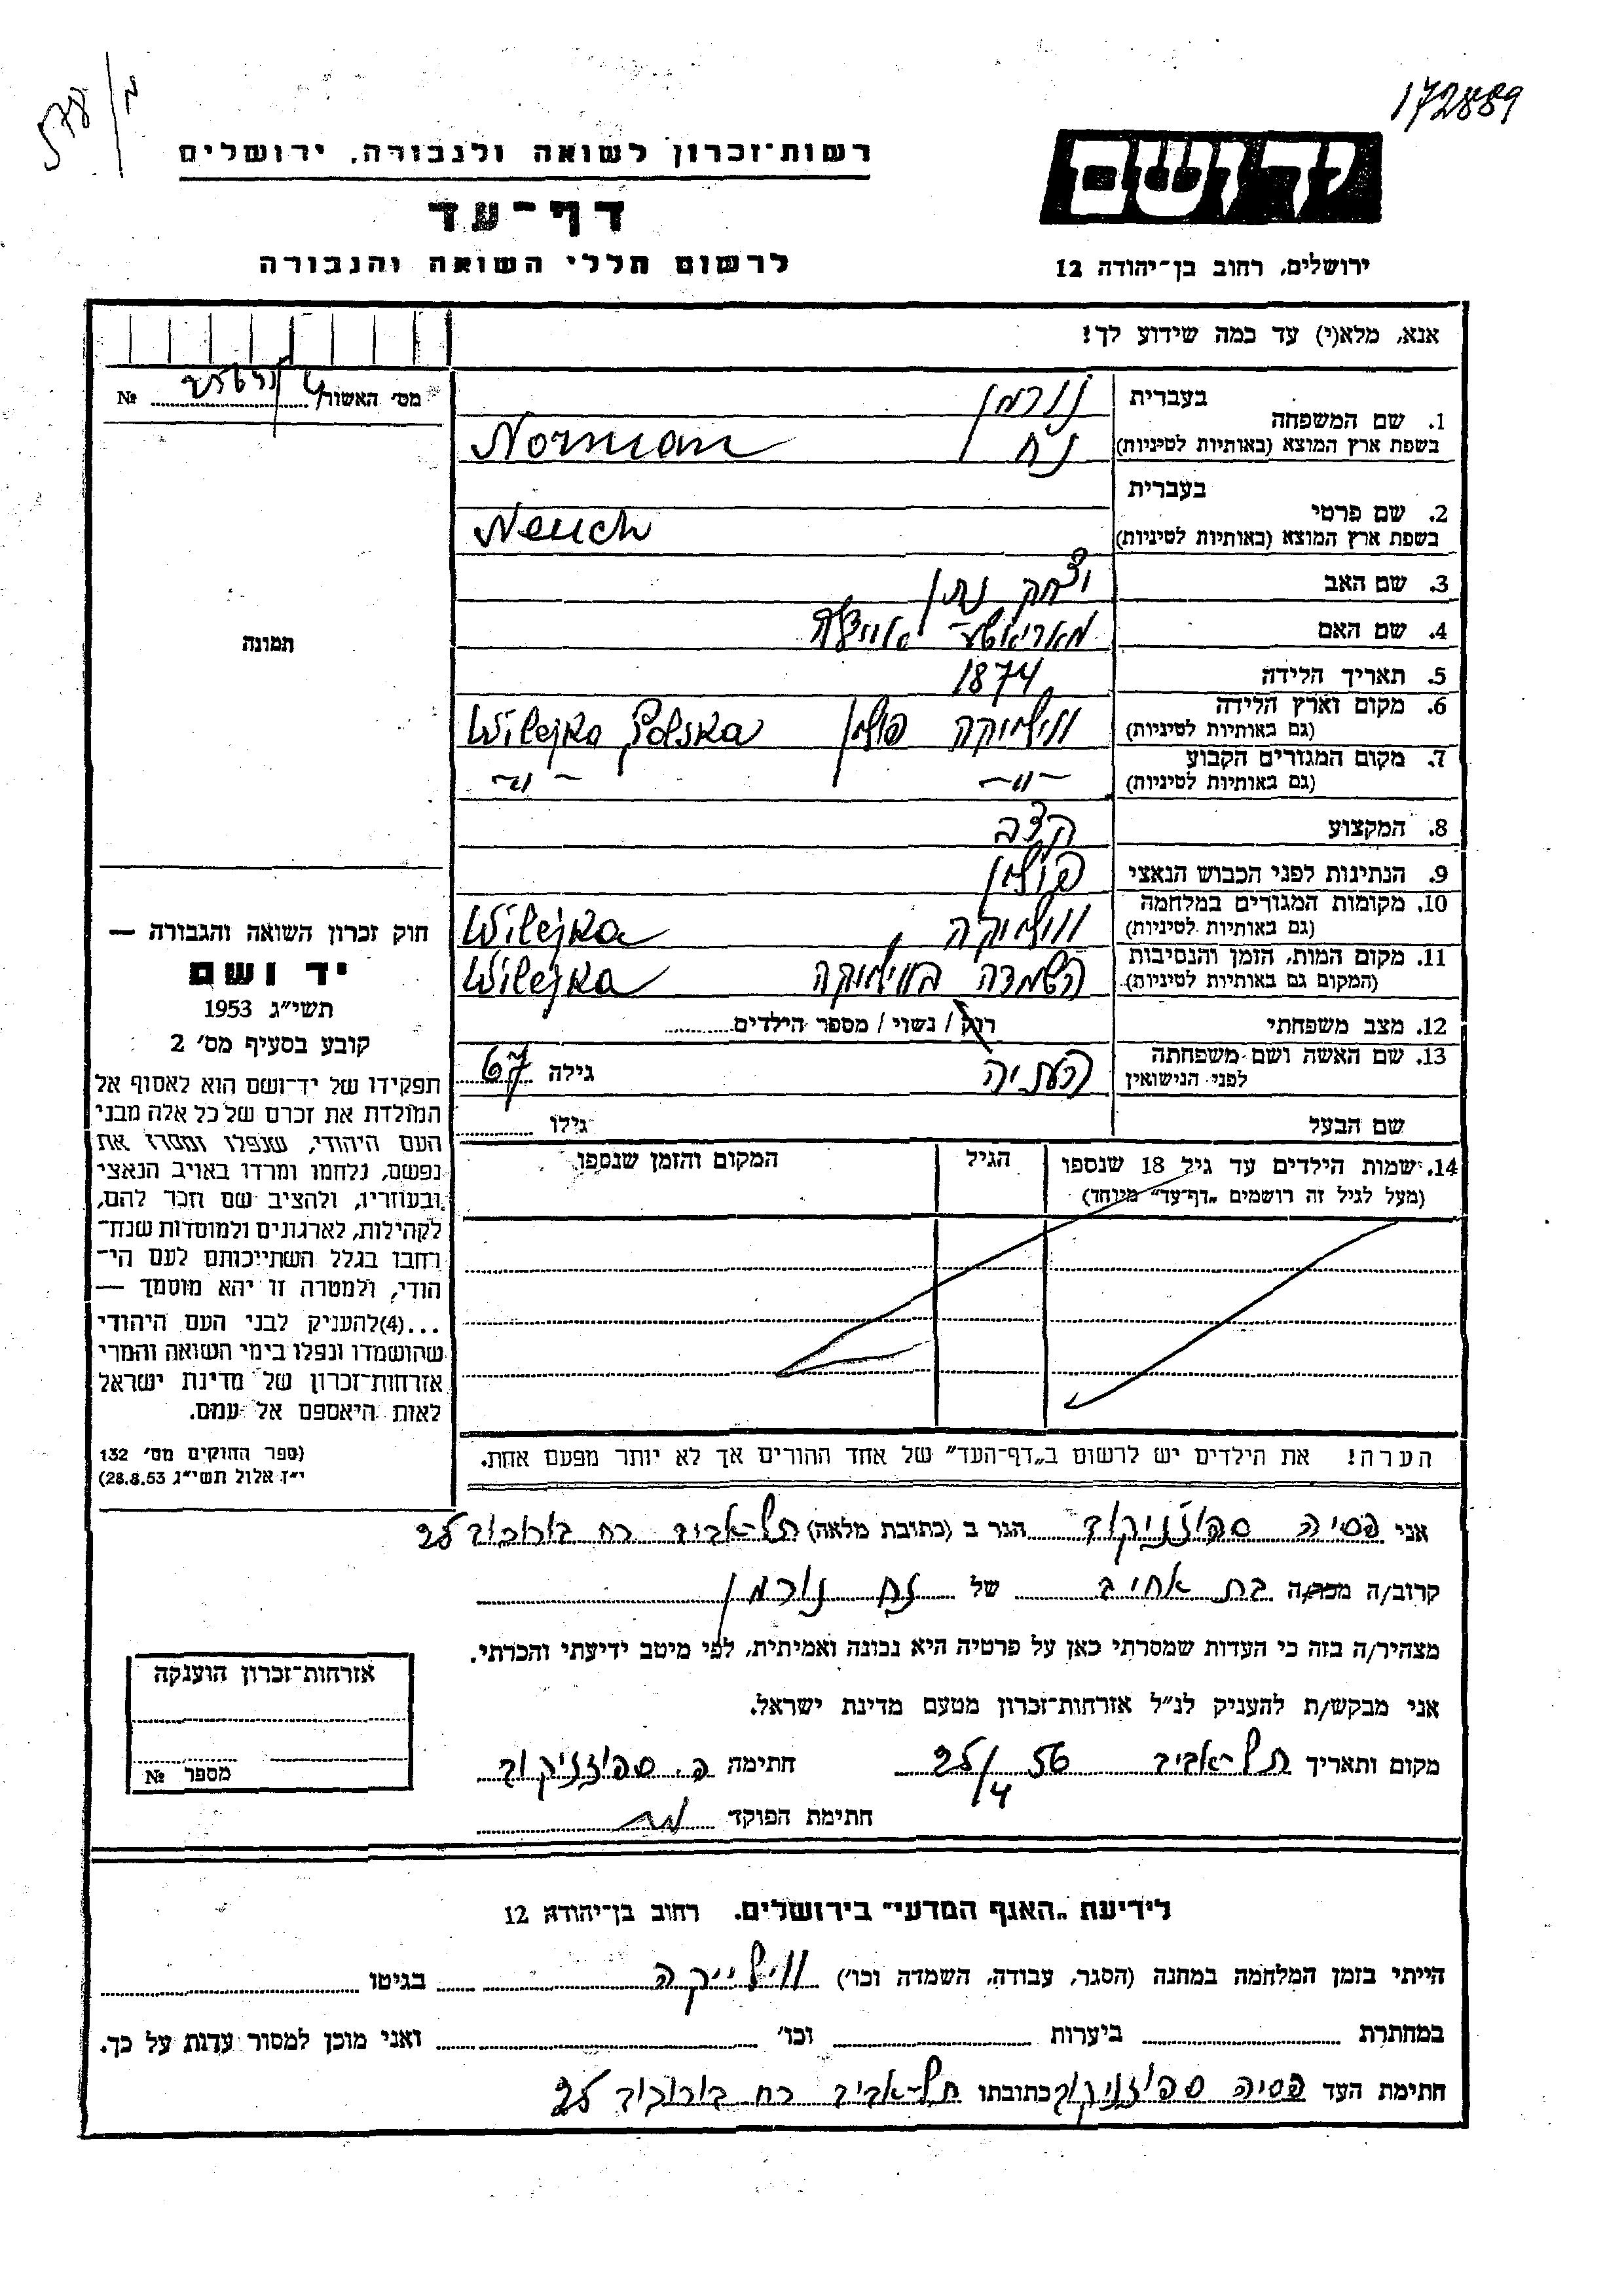 172889
רשות־זכרון לשואה ולגבורה, ירושלים
יד ושם
דף־עד
לרשום חללי השואה והגבורה
ירושלים, רחוב בן־יהודה 12
אנא, מלא(י) עד כמה שידוע לך!
מס׳ האשור №
1. שם המשפחה
בעברית נורמן
בשפת ארץ המוצא (באותיות לטיניות) נח Norman
2. שם פרטי
בעברית
בשפת ארץ המוצא (באותיות לטיניות) Neuch
3. שם האב יצחק נתן
4. שם האם
5. תאריך הלידה 1874
6. מקום וארץ הלידה
(גם באותיות לטיניות) ווילייקה פולין Wilejka Polska
7. מקום המגורים הקבוע
(גם באותיות לטיניות) –״– –״–
8. המקצוע קצב
9. הנתינות לפני הכבוש הנאצי פולין
10. מקומות המגורים במלחמה
(גם באותיות לטיניות) ווילייקה, Wilejka
11. מקום המות, הזמן והנסיבות
(המקום גם באותיות לטיניות) השמדה בווילייקה Wilejka
12. מצב משפחתי רווק / נשוי / מספר הילדים
13. שם האשה ושם משפחתה
לפני הנישואין גילה 67
שם הבעל גילו
14. שמות הילדים עד גיל 18 שנספו הגיל המקום והזמן שנספו
(מעל לגיל זה רושמים „דף־עד״ מיוחד)
הערה! את הילדים יש לרשום ב„דף־העד״ של אחד ההורים אך לא יותר מפעם אחת.
תמונה
חוק זכרון השואה והגבורה —
יד ושם
תשי״ג 1953
קובע בסעיף מס׳ 2 :
תפקידו של יד־ושם הוא לאסוף אל
המולדת את זכרם של כל אלה מבני
העם היהודי, שנפלו ומסרו את
נפשם, נלחמו ומרדו באויב הנאצי
ובעוזריו, ולהציב שם וזכר להם,
לקהילות, לארגונים ולמוסדות שנח־
רחבו בגלל השתייכותם לעם הי־
הודי, ולמטרה זו יהא מוסמך —
...(4)להעניק לבני העם היהודי
שהושמדו ונפלו בימי השואה והמרי
אזרחות־זכרון של מדינת ישראל
לאות היאספם אל עמם.
(ספר החוקים מס׳ 132
י״ז אלול תשי״ג 28.8.53)
אני פסיה ספוזניקוב הגר ב (כתובת מלאה) תל־אביב רח בורוכוב 25
קרוב/ה מכר/ה בת אחיו של נח נורמן
מצהיר/ה בזה כי העדות שמסרתי כאן על פרטיה היא נכונה ואמיתית, לפי מיטב ידיעתי והכרתי.
אני מבקש/ת להעניק לנ״ל אזרחות־זכרון מטעם מדינת ישראל.
מקום ותאריך תל־אביב 25/4 56 חתימה פ. ספוזניקוב
חתימת הפוקד
אזרחות־זכרון הוענקה
מספר №
לידיעת „האגף המדעי״ בירושלים. רחוב בן־יהודה 12
הייתי בזמן המלחמה במחנה (הסגר, עבודה, השמדה וכו׳) ווילייקה בגיטו
במחתרת ביערות וכו׳ ואני מוכן למסור עדות על כך.
חתימת העד פסיה ספוזניקוב כתובתו תל־אביב רח בורוכוב 25